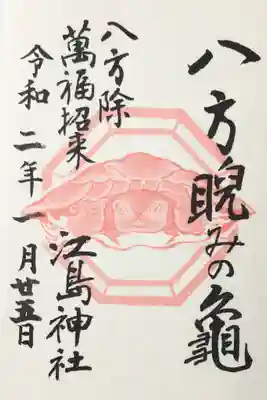 八方睨みの亀
八方除
萬福招来
江島神社
令和二年一月廿五日